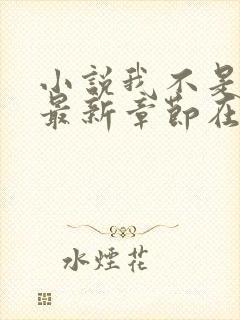 小説我不是
最新章節在
水煙花